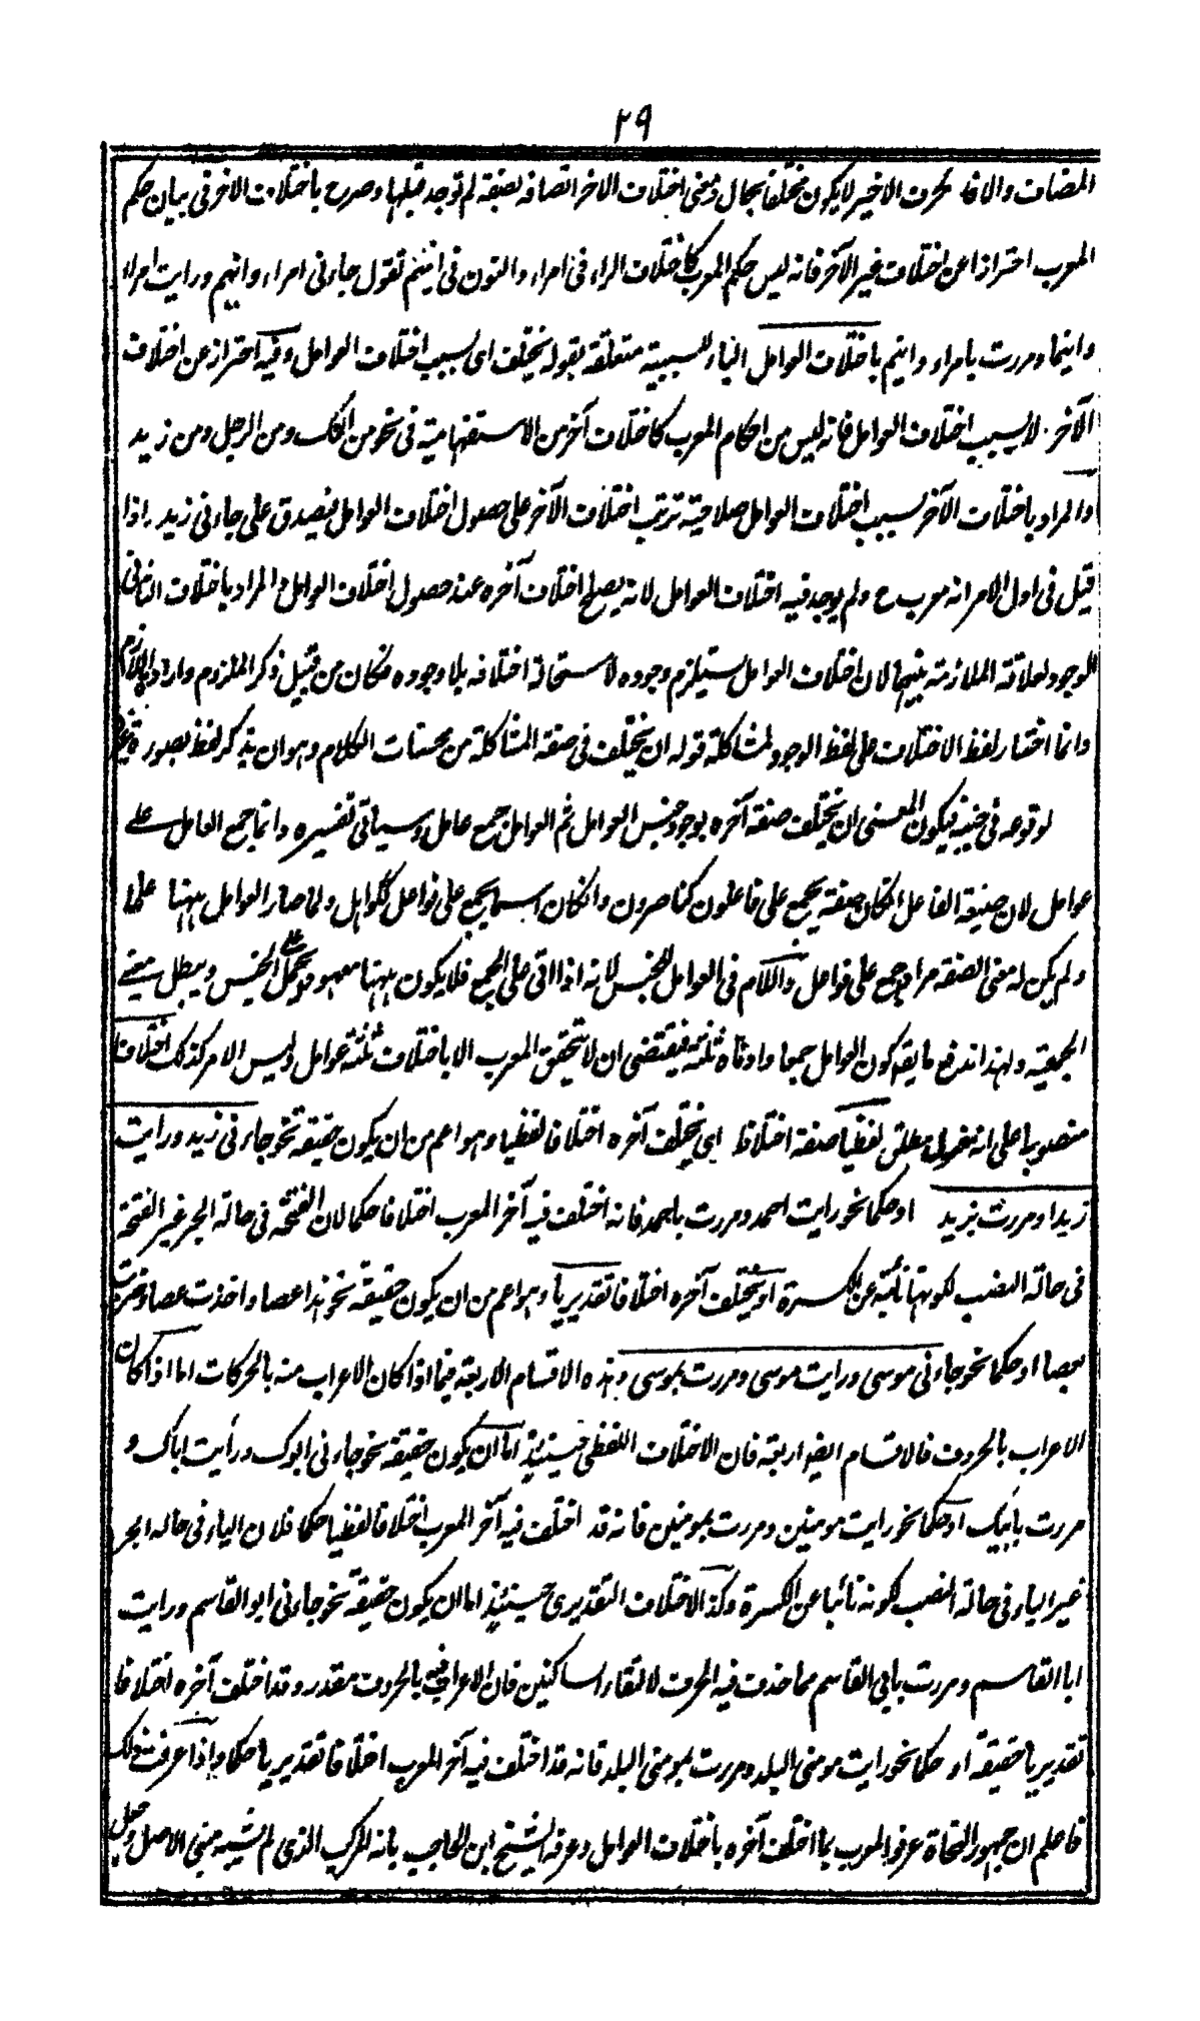 ٢٩
المضاف والا فالحرف الاخير لا يكون مختلفا بحال ومعنى اختلاف الاخر اتصافه بصفة لم توجد قبلها وصرح باختلاف الاخر فى بيان حكم
المعرب احترازا عن اختلاف غير الآخر فانه ليس حكم المعرب كاختلاف الراء فى امراء والنون فى ابنم تقول جاءنى امراء وابنم ورايت امراء
وابنما ومررت بامراء وابنم باختلاف العوامل الباء للسببية متعلقة بقوله يختلف اى بسبب اختلاف العوامل وفيه احتراز عن اختلاف
الآخر لا بسبب اختلاف العوامل فانه ليس من احكام المعرب كاختلاف آخر من الاستفهامية فى نحو من ومن الرجل ومن زيد
والمراد باختلاف الآخر بسبب اختلاف العوامل صلاحية ترتب اختلاف الآخر على حصول اختلاف العوامل فيصدق على جاءنى زيد اذا
قيل فى اول الامر انه معرب ولم يوجد فيه اختلاف العوامل لانه يصلح اختلاف آخره عند حصول اختلاف العوامل والمراد باختلاف الثانى
الوجود لعلاقة الملازمة بينهما لان اختلاف العوامل يستلزم وجوده لاستحالة اختلافه بلا وجوده فكان من قبيل ذكر الملزوم وارادة اللازم
وانما اختار لفظ الاختلاف على لفظ الوجود لمشاكلة قوله ان يختلف فى صفة المشاكلة من محسنات الكلام وهو ان يذكر لفظ بصورة غيره
لوقوعه فى فيكون المعنى ان يختلف صفة آخره بوجود جنس العوامل ثم العوامل جمع عامل وسياتى تفسيره وانما جمع العامل على
عوامل لان صيغة الفاعل ان كان صفة يجمع على فاعلون كناصرون وان كان اسما يجمع على فواعل ككواهل ولما صار العوامل ههنا علما
ولم يكن له معنى الصفة مرادا جمع على فواعل واللام فى العوامل للجنس لانه اذا اتى على الجمع فلا يكون ههنا معهود يحمل على الجنس ويبطل معنى
الجمعية ولهذا اندفع ما يقع كون العوامل جمعا وادناه ثلثة فيقتضى ان لا يتحقق المعرب الا باختلاف ثلثة عوامل وليس الامر كذلك اختلافا
منصوب على انه مفعول مطلق لفظيا صفة اختلافا اى يختلف آخره اختلافا لفظيا وهو اعم من ان يكون حقيقة نحو جاءنى زيد ورايت
زيدا ومررت بزيد او حكما نحو رايت احمد ومررت باحمد فانه اختلف فيه آخر المعرب اختلافا حكما لان الفتحة فى حالة الجر غير الفتحة
فى حالة النصب لكونها نائبة عن الكسرة او يختلف آخره اختلافا تقديريا وهو اعم من ان يكون حقيقة نحو هذا عصا واخذت عصا وضربت
بعصا او حكما نحو جاءنى موسى ورايت موسى ومررت بموسى وهذه الاقسام الاربعة فيما اذا كان الاعراب منه بالحركات اما اذا كان
الاعراب بالحروف فالاقسام ايضا اربعة فان الاختلاف اللفظى حينئذ اما ان يكون حقيقة نحو جاءنى ابوك ورأيت اباك و
مررت بأبيك او حكما نحو رايت مومنين ومررت بمومنين فانه قد اختلف فيه آخر المعرب اختلافا لفظيا حكما فلان الياء فى حالة الجر
غير الياء فى حالة النصب لكونه نائبا عن الكسرة وكذا الاختلاف التقديرى حينئذ اما ان يكون حقيقة نحو جاءنى ابو القاسم ورايت
ابا القاسم ومررت بابى القاسم مما حذف فيه الحرف لالتقاء الساكنين فان الاعراب فيه بالحروف مقدر وقد اختلف آخره اختلافا
تقديريا حقيقة او حكما نحو رايت مومنى البلد ومررت بمومنى البلد فانه قد اختلف فيه آخر المعرب اختلافا تقديريا حكما واذا عرفت ذلك
فاعلم ان جمهور النحاة عرفوا المعرب بما اختلف آخره باختلاف العوامل وعرفه الشيخ ابن الحاجب بانه المركب الذى لم يشبه مبنى الاصل وجعل